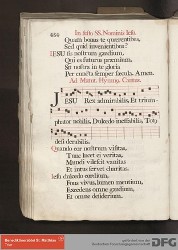 656 In festo SS. Nominis Iesu.
Quam bonus te quærentibus,
Sed quid invenientibus?
Sis nostrum gaudium,
Qui es futurus præmium,
Sit nostra in te gloria
Per cuncta semper sæcula. Amen.
Ad Matut. Hymnus. Cantus.
JESU Rex admirabilis, Et trium-
phator nobilis, Dulcedo ineffabilis, Totus
desiderabilis.
Quando cor nostrum visitas,
Tunc lucet ei veritas,
Mundi vilescit vanitas
Et intus fervet charitas.
Iesu dulcedo cordium,
Fons vivus, lumen mentium,
Excedens omne gaudium,
Et omne desiderium.
DFG